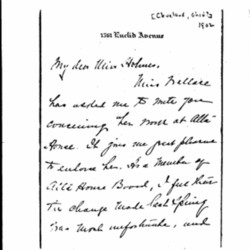 [Cleveland, Ohio]
1902
1701 Euclid Avenue
My dear Miss Holmes,
Miss Wallace
has asked me to write you
concerning her work at Alta
House. It gives me great pleasure
to endorse her. As a member of
Alta House Board, I feel that
the change made last Spring
was most unfortunate, and